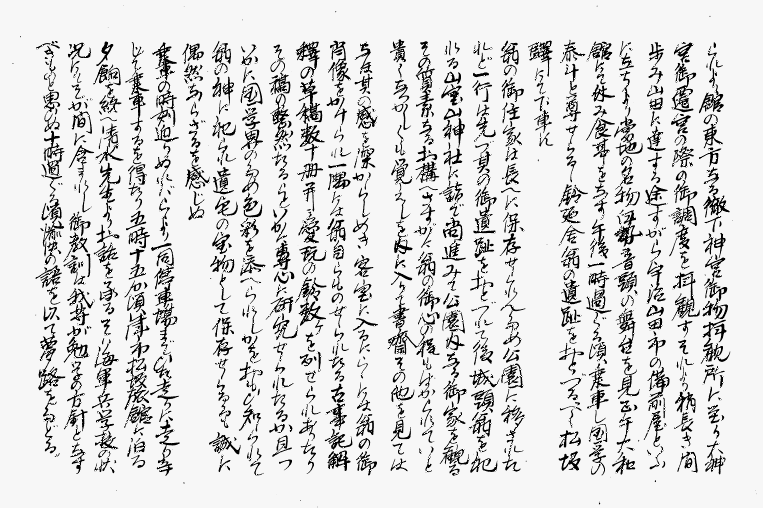 られたる館の東方なる徴古神宮御物拝観所に至り大神
宮御遷宮の際の御調度を拝観すそれより稍長き間
歩み山田に達する途すがら宇治山田市の備前屋といふ
に立ちより当地の名物伊勢音頭の舞台を見正午大和
館にて休み食事をなす午後一時過ぐる頃乗車し国学の
泰斗と尊せらるゝ鈴廼舎翁の遺跡をおとづるべく松坂
駅にて下車す
翁の御住家は長へに保存せられんため公園に移された
れど一行は先づ其の御遺趾をおとづれて後城頭翁を祀
れる山室山神社に詣で尚進みて公園内なる御家を観る
その質素なるお構へさすがに翁の御心の程もはかられていと
貴くもなつかしくも覚えしを内に入りて書斎その他を見ては
与は其の感に深からしめき客室に入るにこゝには翁の御
肖像をかけられ一隅には翁自らものせられたる古事記解
釈の草稿数十冊并に愛玩の鈴数ケを列ぜられありたり
その稿の整然たるらいかに専心に研究せられたるか且つ
いかに国学界のため色彩を添へられしかをおもひ知られて
翁の神に祀られ遺宅の宝物として保存せらるゝも誠に
偶然ならざるを感じぬ
乗車の時刻迫りぬればこゝより一同停車場までいた走りに走り辛
じて乗車するを得たり五時十五分頃津市松坂旅館に泊る
夕餉を終へ清水先生よりお話を承るそは海軍兵学校の状
況にてその間に含まれし御教訓は我等が勉むる方針ともす
べきものと思ひぬ十時過ぐる頃愉快の語を以て夢路をたどる